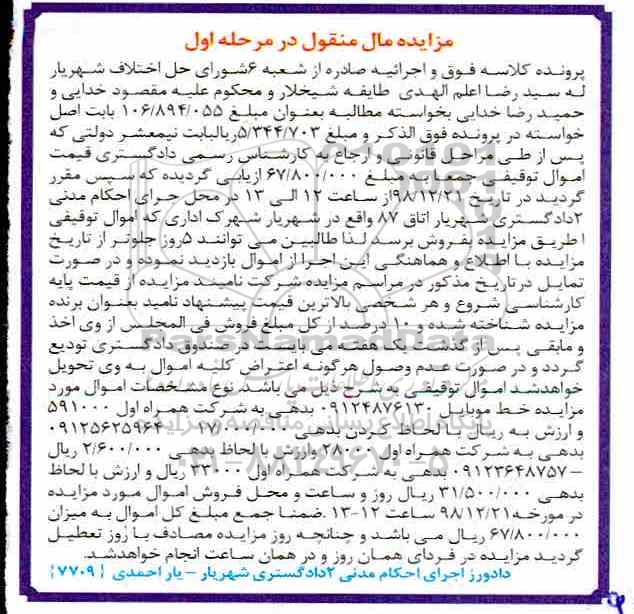 مزایده مال منقول در مرحله اول
پرونده کلاسه فوق و اجرائیه صادره از شعبه ۶شورای حل اختلاف شهریار
له سید رضا اعلم الهدی طایفه شیخلار و محکوم علیه مقصود خدایی و
حمید رضا خدایی بخواسته مطالبه بعنوان مبلغ ۱۰۶/۸۹۴/۰۵۵ بابت اصل
خواسته در پرونده فوق الذکر و مبلغ ۵/۳۴۴/۷۰۳ریالبابت نیمعشر دولتی که
پس از طی مراحل قانونی و ارجاع به کارشناس رسمی دادگستری قیمت
اموال توقیفی جمعا به مبلغ ۶۷/۸۰۰/۰۰۰ ازیابی گردیده که سپس مقرر
گردید در تاریخ ۹۸/۱۲/۲۱از ساعت ۱۲ الی ۱۳ در محل جرای احکام مدنی
۲دادگستری شهریار اتاق ۸۷ واقع در شهریار شهرک اداری که اموال توقیفی
ا طریق مزایده بفروش برسد لذا طالبین می توانند ۵روز جلوتر از تاریخ
مزایده با اطلاع و هماهنگی این اجرا از اموال بازدید نموده و در صورت
تمایل درتاریخ مذکور در مراسم مزایده شرکت نامیند مزایده از قیمت پایه
کارشناسی شروع و هر شخصی بالاترین قیمت پیشنهاد نامید بعنوان برنده
مزایده شناخته شده و ۱۰ درصد از کل مبلغ فروش فی المجلس از وی اخذ
و مابقی پس از گذشت یک هفته می بایست در صندوق دادگستری تودیع
گردد و در صورت عدم وصول هرگونه اعتراض کلیه اموال به وی تحویل
خواهدشد اموال توقیفی به شرح ذیل می باشد نوع مشخصات اموال مورد
مزایده خط موبایل ۰۹۱۲۴۸۷۶۱۳۰ بدهی به شرکت همراه اول ۵۹۱۰۰۰
و ارزش به ریال با لحاظ کردن بدهی ۰۹۱۲۵۶۲۵۹۶۴
بدهی به شرکت همراه اول وارزش با لحاظ بدهی ۲/۶۰۰/۰۰۰ ریال
– ۰۹۱۲۳۶۴۸۷۵۷ بدهی به شرکت همراه اول ۳۳۰۰۰ ریال و ارزش با لحاظ
بدهی ۳۱/۵۰۰/۰۰۰ ریال روز و ساعت و محل فروش اموال مورد مزایده
در مورخه ۹۸/۱۲/۲۱ ساعت ۱۲-۱۳ .ضمنا جمع مبلغ کل اموال به میزان
۶۷/۸۰۰/۰۰۰ ریال می باشد و چنانچه روز مزایده مصادف با روز تعطیل
گردید مزایده در فردای همان روز و در همان ساعت انجام خواهدشد.
دادورز اجرای احکام مدنی ۲دادگستری شهریار – یار احمدی {۷۷۰۹}